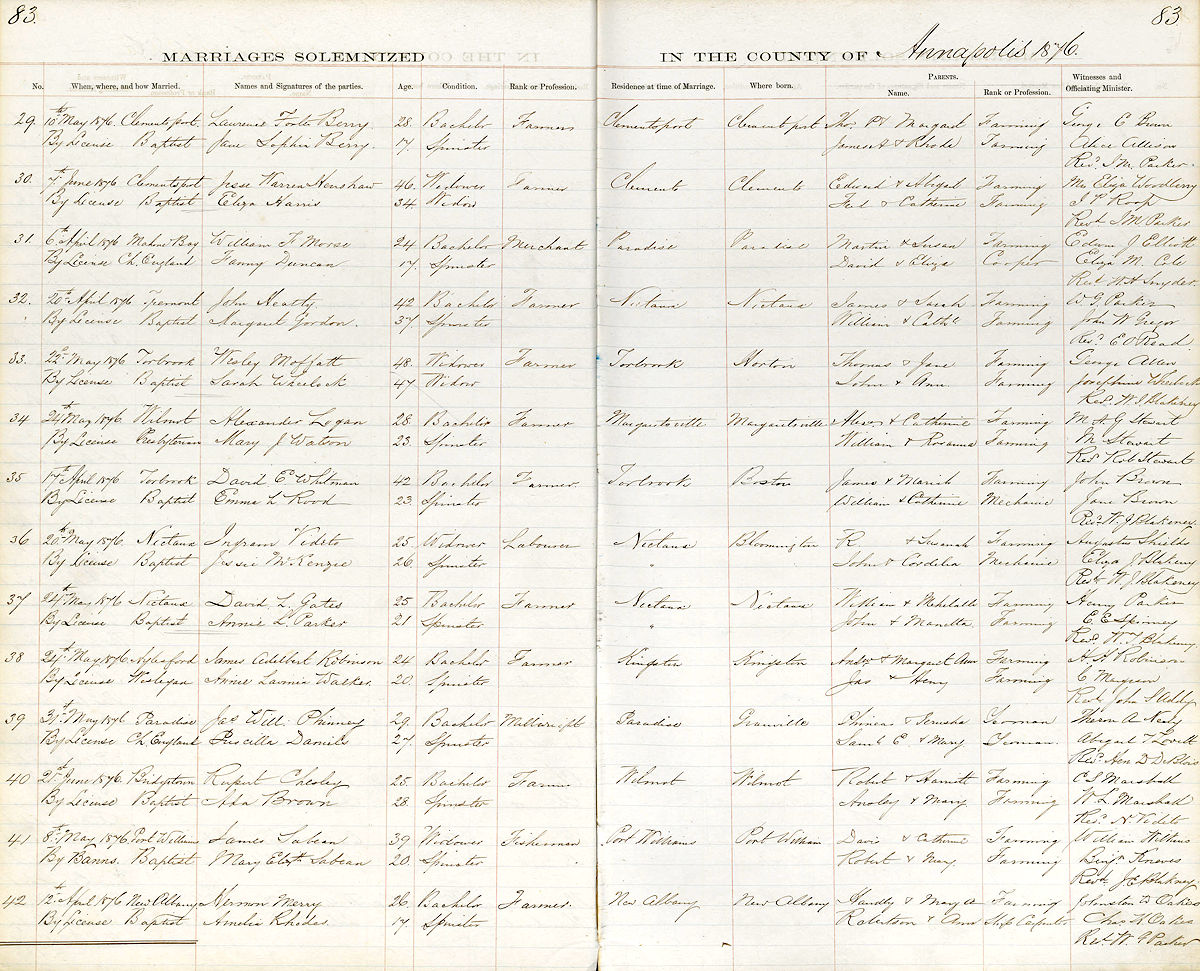 83.
83
MARRIAGES SOLEMNIZED IN THE COUNTY OF Annapolis 1876.
No. When, where, and how Married. Names and Signatures of the parties. Age. Condition. Rank or Profession. Residence at time of Marriage. Where born. PARENTS. Name. Rank or Profession. Witnesses and Officiating Minister.
29. 10th May 1876 Clementsport Laurence Foster Berry. 28. Bachelor Farmer Clementsport Clementsport Thos P & Margaret Farming George E Brown
By License Baptist Jane Sophia Berry. 17. Spinster James A & Rhoda Farming Alice Allison
Revd. J M. Parker
30. 7th June 1876 Clementsport Jesse Warren Henshaw 46. Widower Farmer Clements Clements Edward & Abigal Farming Mrs Eliza Woodberry
By License Baptist Eliza Harris 34. Widow & Catherine Farming J P Roop
Revd J M Parker
31. 6th April 1876 Mahone Bay William F Morse 24 Bachelor Merchant Paradise Paradise Martin & Susan Farming Edwin J Elliott
By License Ch. England Fanny Duncan 17. Spinster David & Eliza Cooper Eliza M. Cole
Revd W H Snyder.
32. 20th April 1876 Tremont John Heatly 42 Bachelor Farmer Nictaux Nictaux James & Sarah Farming W G Parker
By License Baptist Margaret Gordon. 37. Spinster William & Cathe Farming John W Gregor
Revd. E O Read.
33. 22d May 1876 Torbrook Wesley Moffatt 48. Widower Farmer Torbrook Horton Thomas & Jane Farming George Allen
By License Baptist Sarah Wheelock 47 Widow John & Ann Farming Josephine Wheelock
Revd. W J Blakeney
34 24th May 1876. Wilmot Alexander Logan 28. Bachelor Farmer Margaretsville Margaretsville Alexr & Catherine Farming M A G Stewart
By License Presbyterian Mary J Watson 23. Spinster William & Rosanna Farming M Stewart
Revd Rob Stewart
35 17th April 1876 Torbrook David E Whitman 42 Bachelor Farmer. Torbrook Boston James & Mariah Farming John Brown
By License Baptist Emma L Rood 23. Spinster William & Catherine Mechanic Jane Brown
Revd. W. J Blakeney
36 20th May 1876. Nictaux Ingram Vidito 25. Widower Labourer Nictaux Bloomington R & Susanah Farming Augustus Shields
By License Baptist Jessie McKenzie 26. Spinster " John & Cordelia Mechanic Eliza J Blakeney
Revd. W. J. Blakeney
37 24th May 1876 Nictaux David L. Gates 25 Bachelor Farmer Nictaux Nictaux William & Mehitable Farming Henry Parker
By License Baptist Annie L. Parker 21 Spinster " John & Manetta Farming E. E Spinney
Revd. W. J. Blakeney
38 24th May 1876 Aylesford James Adelbert Robinson 24 Bachelor Farmer Kingston Kingston Andw & Margaret Ann Farming A. H Robinson
By License Wesleyan Annie Lavinia Walker. 20. Spinster Jas & Henry Farming C Mageson
Revd John S Addy
39 31st May 1876 Paradise Jas Will. Phinney 29. Bachelor Millwright Paradise Granville Phineas & Jerusha Yeoman Theron A Neily
By License Ch. England Priscilla Daniels 27. Spinster Saml E. & Mary Yeoman. Abigail T Lovett
Revd. Hen D DeBlois
40 21st June 1876. Bridgetown Rupert Chesley 25. Bachelor Farmer Wilmot Wilmot Robert & Harriett Farming C S Marshall
By License Baptist Ada Brown 23. Spinster Ansley & Mary Farming W L Marshall
Revd. N Vidito
41 8th May 1876 Port Williams James Sabean 39 Widower Fisherman Port Williams Port William Davis & Catherine Farming William Wilkins
By Banns. Baptist Mary Elizth Sabean 20. Spinster Robert & Mary Farming Benjn
Revd. J. E Blakney
42 12th April 1876 New Albany Nermon Merry 26. Bachelor Farmer. New Albany New Albany Handly & Mary A Farming Johnston D Oakes
By License Baptist Amelia Rhodes. 17. Spinster Robertson & Ann Ship Carpenter Chas H Oakes
Revd W. G Parker